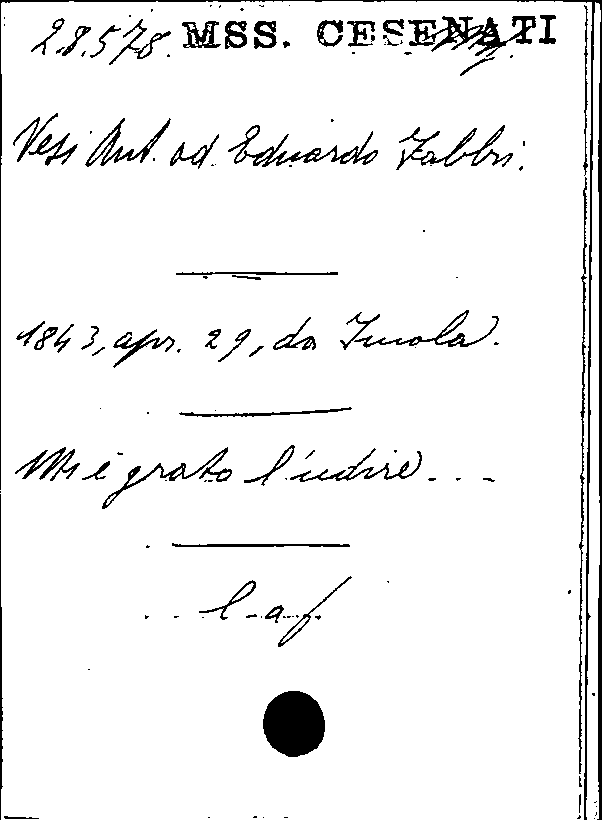 2.8.578. MSS. CESENATI
Vesi Ant. ad Eduardo Fabbri.
1843, apr. 29, da Imola.
Mi è grato l'udire...
l.a.f.